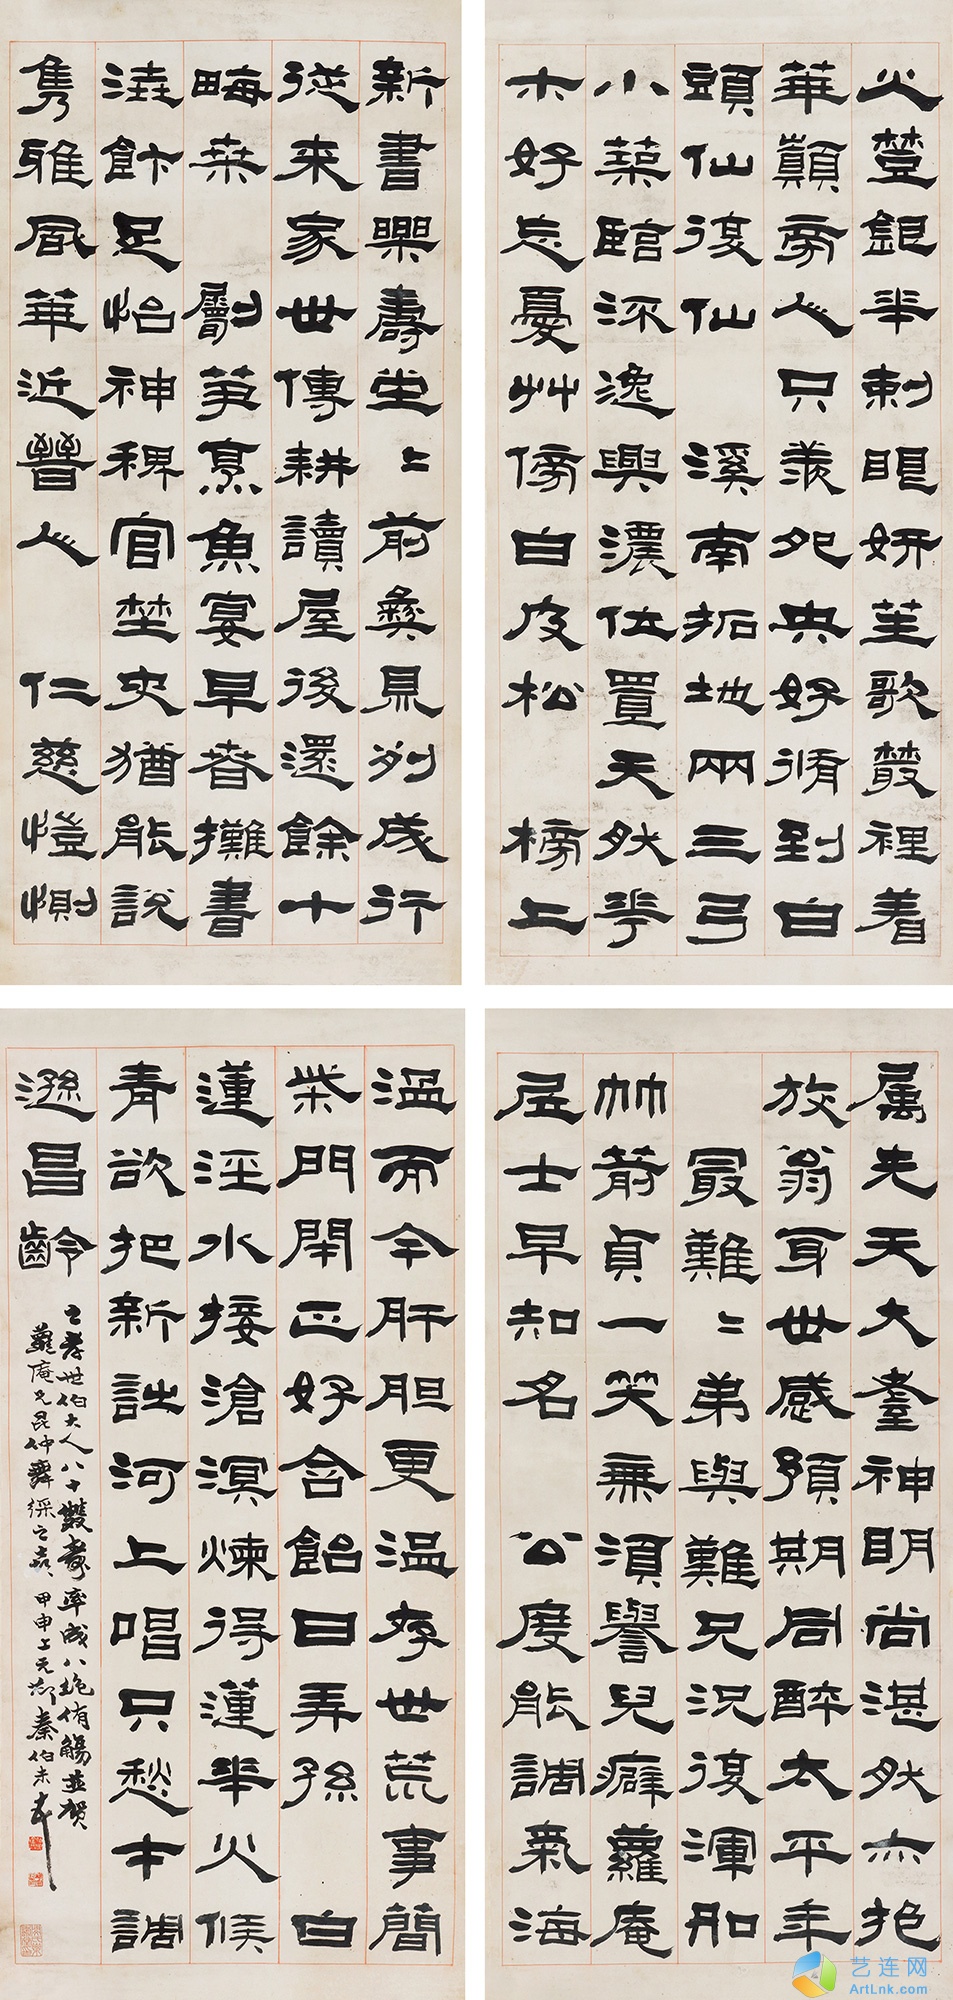 火銀華刺眼妍笙歌叢裡着
華顛旁人只羨夗央好脩到白
頭仙復仙 溪南拓地兩三弓
小築臨流逸興濃位置天然花
木好忘憂艸傍白皮松 榜上
新書樂壽堂〻前彝鼎列成行
從來家世傳耕讀屋後還餘十
畮桑 劚筍烹魚宴早春攤書
澆飰足怡神稗官埜史猶能說
雋雅風華近晉人 仁慈愷惻
屬先天大耋神明尚湛然亦抱
放翁身世感預期同醉太平年
最難〻弟與難兄況復渾加
竹箭貞一笑無須譽兒癖蘿庵
居士早知名 公度能調氣海
溫而今肝胆更溫存世荒事簡
柴門閉正好含飴日弄孫 白
蓮涇水接滄溟煉得蓮華火候
青欲把新詩河上唱只愁才調
遜昌齡
孝世伯大人八十雙壽率成八絕侑觴並賀
蘿庵兄昆仲舞綵之喜 甲申上元節秦伯未
艺连网
ArtLnk.com